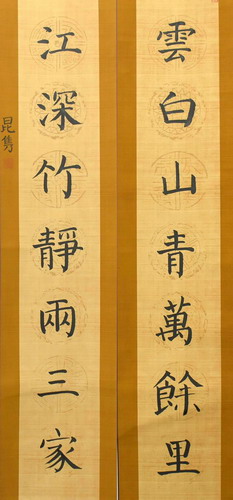 雲白山青萬餘里
江深竹靜兩三家
昆雋